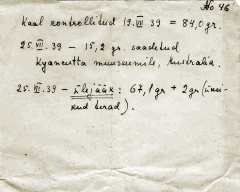 No 46
Kaal kontrollitud 19.VIII 39 = 84,0 gr.
25.VIII.39 – 15,2 gr. saadetud
Kyancutta muuseumile, Australia.
25.VIII.39 – ülejääk: 67,1 gr + 2 gr (üksi-
kud terad).